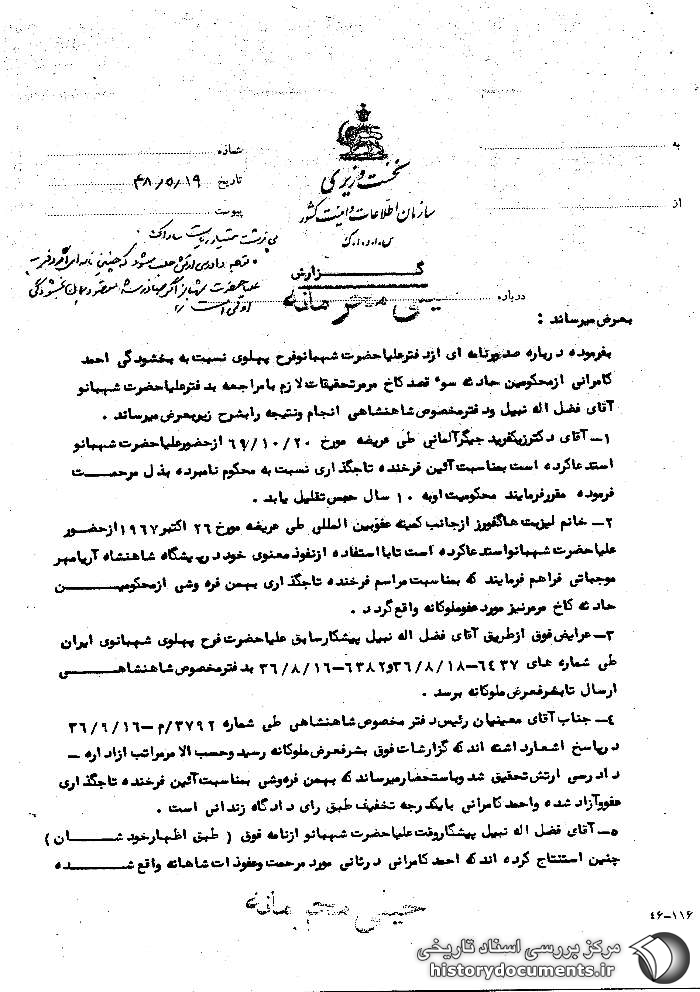 به
از
نخست وزیری
سازمان اطلاعات و امنیت کشور
شماره
تاریخ ۴۸/۵/۱۹
پیوست
گزارش
درباره
خیلی محرمانه
بعرض میرساند :
بفرموده درباره صدورنامه ای ازدفترعلیاحضرت شهبانوفرح پهلوی نسبت به بخشودگی احمد
کامرانی ازمحکومین حادثه سوء قصد کاخ مرمرتحقیقات لازم بامراجعه بدفترعلیاحضرت شهبانو
آقای فضل اله نبیل ودفترمخصوص شاهنشاهی انجام ونتیجه رابشرح زیربعرض میرساند .
۱- آقای دکترزیکفرید جیگرآلمانی طی عریضه مورخ ۶۹/۱۰/۲۰ ازحضورعلیاحضرت شهبانو
استدعاکرده است بمناسبت آئین فرخنده تاجگذاری نسبت به محکوم نامبرده بذل مرحمت
فرموده مقررفرمایند محکومیت اوبه ۱۰ سال حبس تقلیل یابد .
۲- خانم لیزیت هاگفورز ازجانب کمیته عفوبین المللی طی عریضه مورخ ۲۶ اکتبر ۱۹۶۷ ازحضور
علیاحضرت شهبانواستدعاکرده است تابااستفاده ازنفوذ معنوی خود درپیشگاه شاهنشاه آریامهر
موجباتی فراهم فرمایند که بمناسبت مراسم فرخنده تاجگذاری بهمن فره وشی ازمحکومین
حادثه کاخ مرمرنیز مورد عفوملوکانه واقع گردد .
۳- عرایض فوق ازطریق آقای فضل اله نبیل پیشکارسابق علیاحضرت فرح پهلوی شهبانوی ایران
طی شماره های ۶۴۳۷-۳۶/۸/۱۸ و۶۳۸۲-۳۶/۸/۱۶ بدفترمخصوص شاهنشاهی
ارسال تابشرفعرض ملوکانه برسد .
۴- جناب آقای معینیان رئیس دفتر مخصوص شاهنشاهی طی شماره ۳۷۹۲/م-۳۶/۹/۱۶
درپاسخ اشعارداشته اند که گزارشات فوق بشرفعرض ملوکانه رسید وحسب الامرمراتب ازاداره -
دادرسی ارتش تحقیق شد وباستحضارمیرساند که بهمن فره وشی بمناسبت آئین فرخنده تاجگذاری
عفووآزاد شده واحمد کامرانی بایکدرجه تخفیف طبق رای دادگاه زندانی است .
۵- آقای فضل اله نبیل پیشکاروقت علیاحضرت شهبانو ازنامه فوق ( طبق اظهارخودشان )
چنین استنتاج کرده اند که احمد کامرانی درثانی مورد مرحمت وعفوذات شاهانه واقع شده
خیلی محرمانه
۴۶-۱۱۶
مرکز بررسی اسناد تاریخی
historydocuments.ir